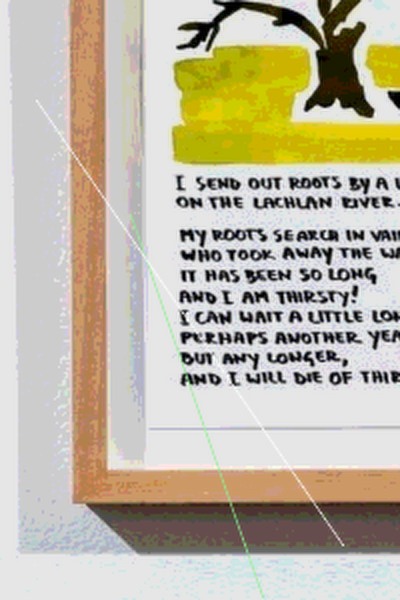 I SEND OUT ROOTS BY A
ON THE LACHLAN RIVER.
MY ROOTS SEARCH IN
WHO TOOK AWAY THE
IT HAS BEEN SO LONG
AND I AM THIRSTY!
I CAN WAIT A LITTLE
PERHAPS ANOTHER
BUT ANY LONGER,
AND I WILL DIE OF